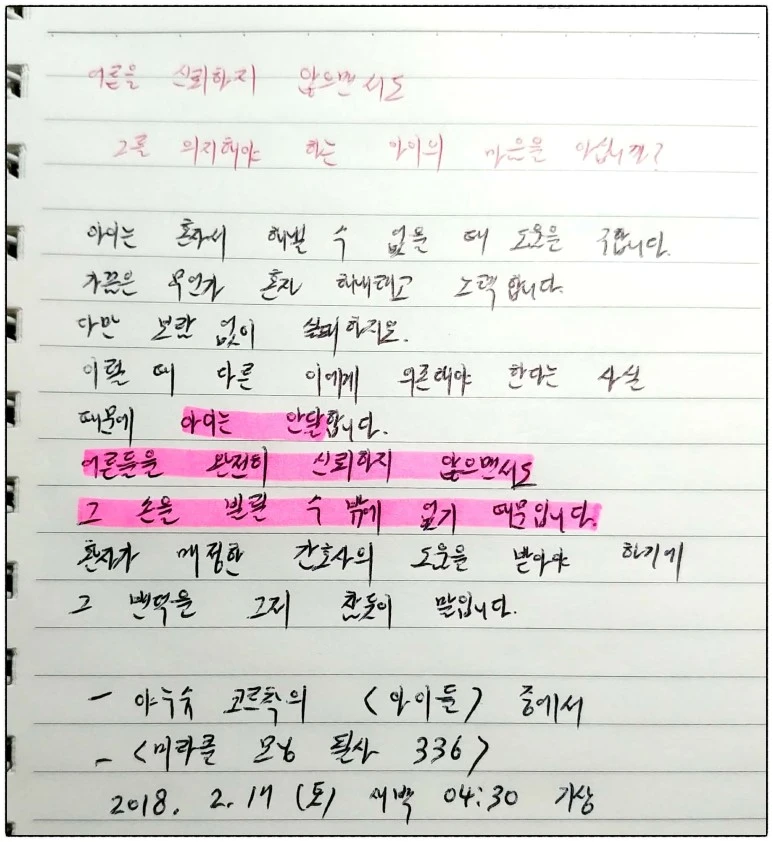 어른을 신뢰하지 않으면서도
그를 의지해야 하는 아이의 마음을 아십니까?
아이는 혼자서 해낼 수 없을 때 도움을 구합니다.
가끔은 무언가 혼자 해내려고 노력합니다.
다만 보람 없이 실패하지요.
이럴 때 다른 이에게 의존해야 한다는 사실
때문에 아이는 안달합니다.
어른들을 완전히 신뢰하지 않으면서도
그 손을 빌릴 수 밖에 없기 때문입니다.
환자가 매정한 간호사의 도움을 받아야 하기에
그 변덕을 그저 참듯이 말입니다.
- 야누슈 코르착의 <아이들> 중에서
- <미라클 모닝 필사 336>
2018. 2. 17 (토) 새벽 04:30 기상